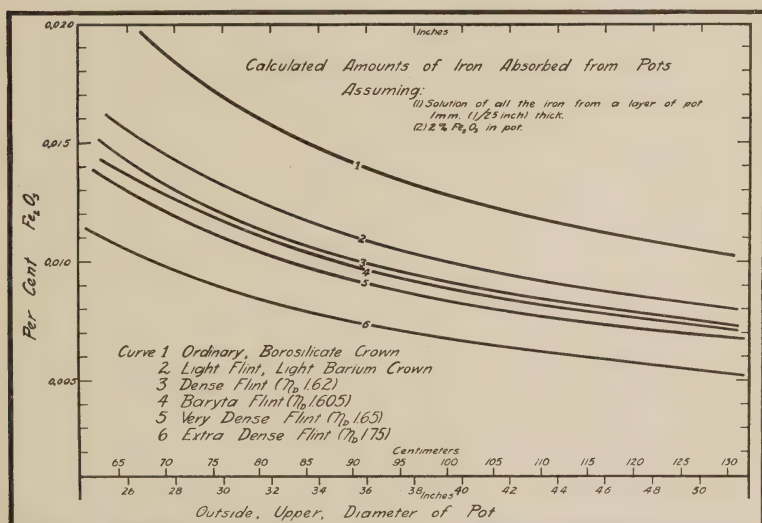 0.020
Inches
Calculated Amounts of Iron Absorbed from Pots
Assuming:
(1) Solution of all the iron from a layer of pot
1mm. (1/25 inch) thick.
(2) 2% Fe₂O₃ in pot.
0.015
0.010
0.005
Per Cent Fe₂O₃
1
2
3
4
5
6
Curve 1 Ordinary, Borosilicate Crown
2 Light Flint, Light Barium Crown
3 Dense Flint (η_D 1.62)
4 Baryta Flint (η_D 1.605)
5 Very Dense Flint (η_D 1.65)
6 Extra Dense Flint (η_D 1.75)
Centimeters
65 70 75 80 85 90 95 100 105 110 115 120 125 130
26 28 30 32 34 36 38 Inches 40 42 44 46 48 50
Outside, Upper, Diameter of Pot